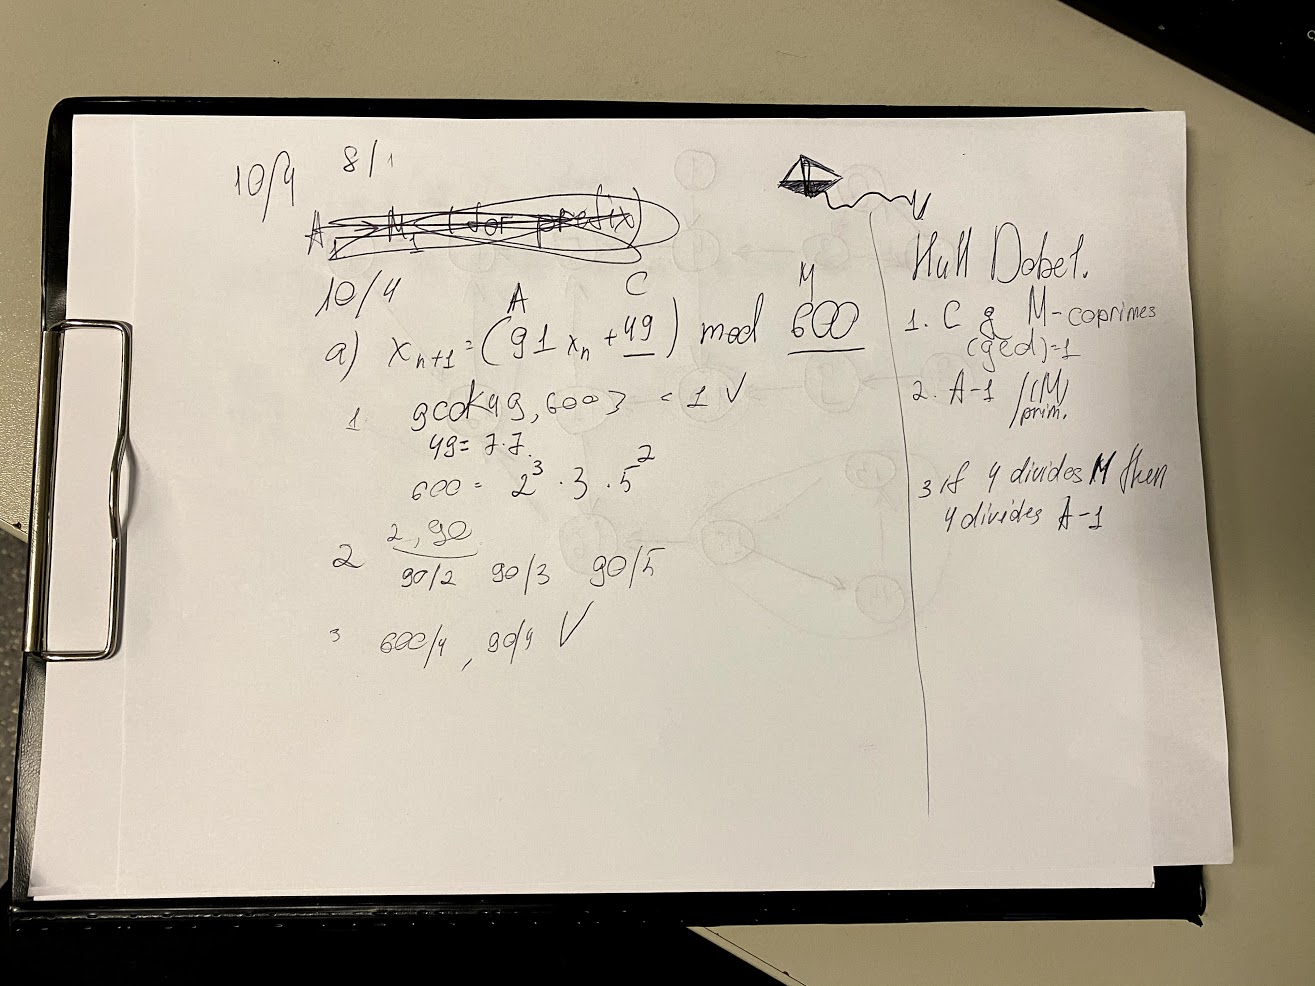 10/4 8/1
10/4
A C M
a) x_{n+1} = (91 x_n + 49) mod 600
1. gcd{49, 600} = 1 V
49 = 7·7.
600 = 2^3 · 3 · 5^2
2 2, 90
90/2 90/3 90/5
3 600/4, 90/4 V
Hull Dobel.
1. C & M - coprimes
(gcd)=1
2. A-1 /(M)
prim.
3 if 4 divides M then
4 divides A-1